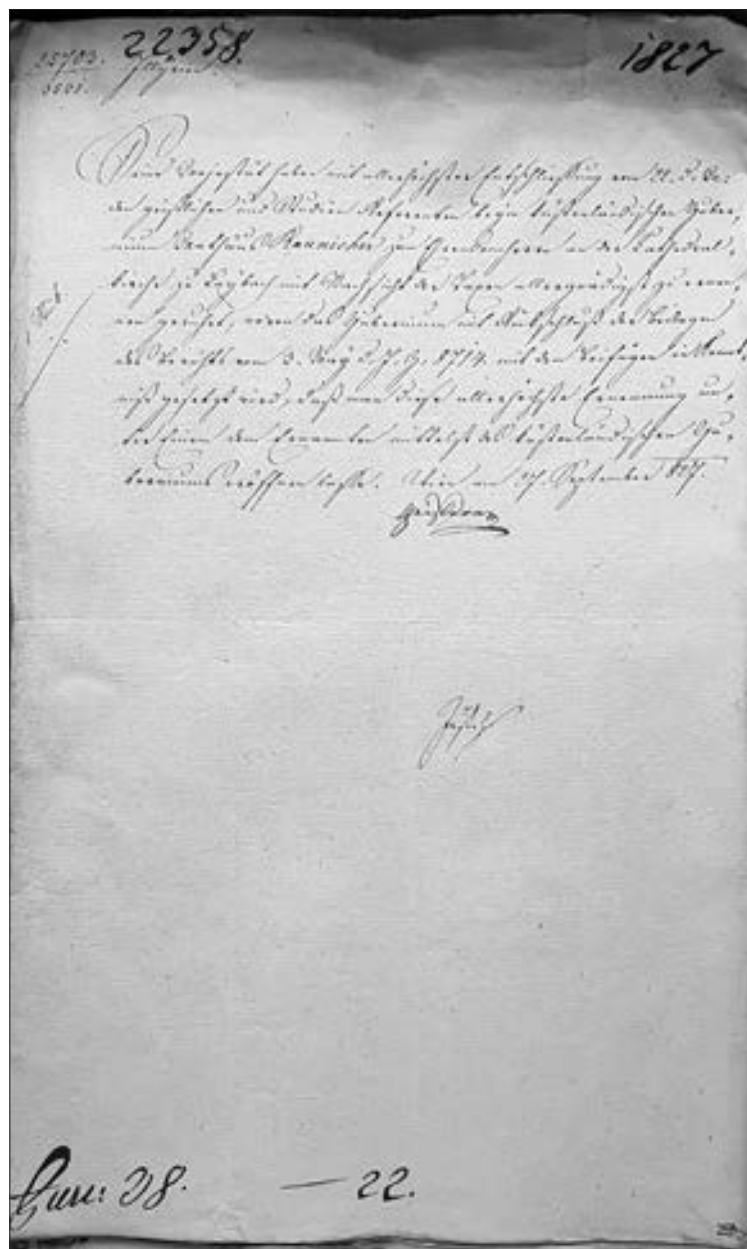 25703. 22358. 1827
Illyrien.
Seine Majestät haben mit allerhöchster Entschließung vom 21. d. M.
den geistlichen und Studien Referenten beym küstenländischen Guber,
nium Mathäus Raunicher zum Ehrendomherrn an der Kathedral,
kirche zu Laybach mit Nachsicht der Taxen allergnädigst zu ernen,
nen geruhet, wovon das Gubernium mit Rückschluß der Beilagen
des Berichts vom 3. May d. J. Z. 8714. mit dem Beifügen in Kennt,
niß gesetzt wird, daß man diese allerhöchste Ernennung un,
ter Einem dem Ernannten mittelst des küstenländischen Gu,
berniums eröffnen lasse. Wien am 27. September 827.
22.